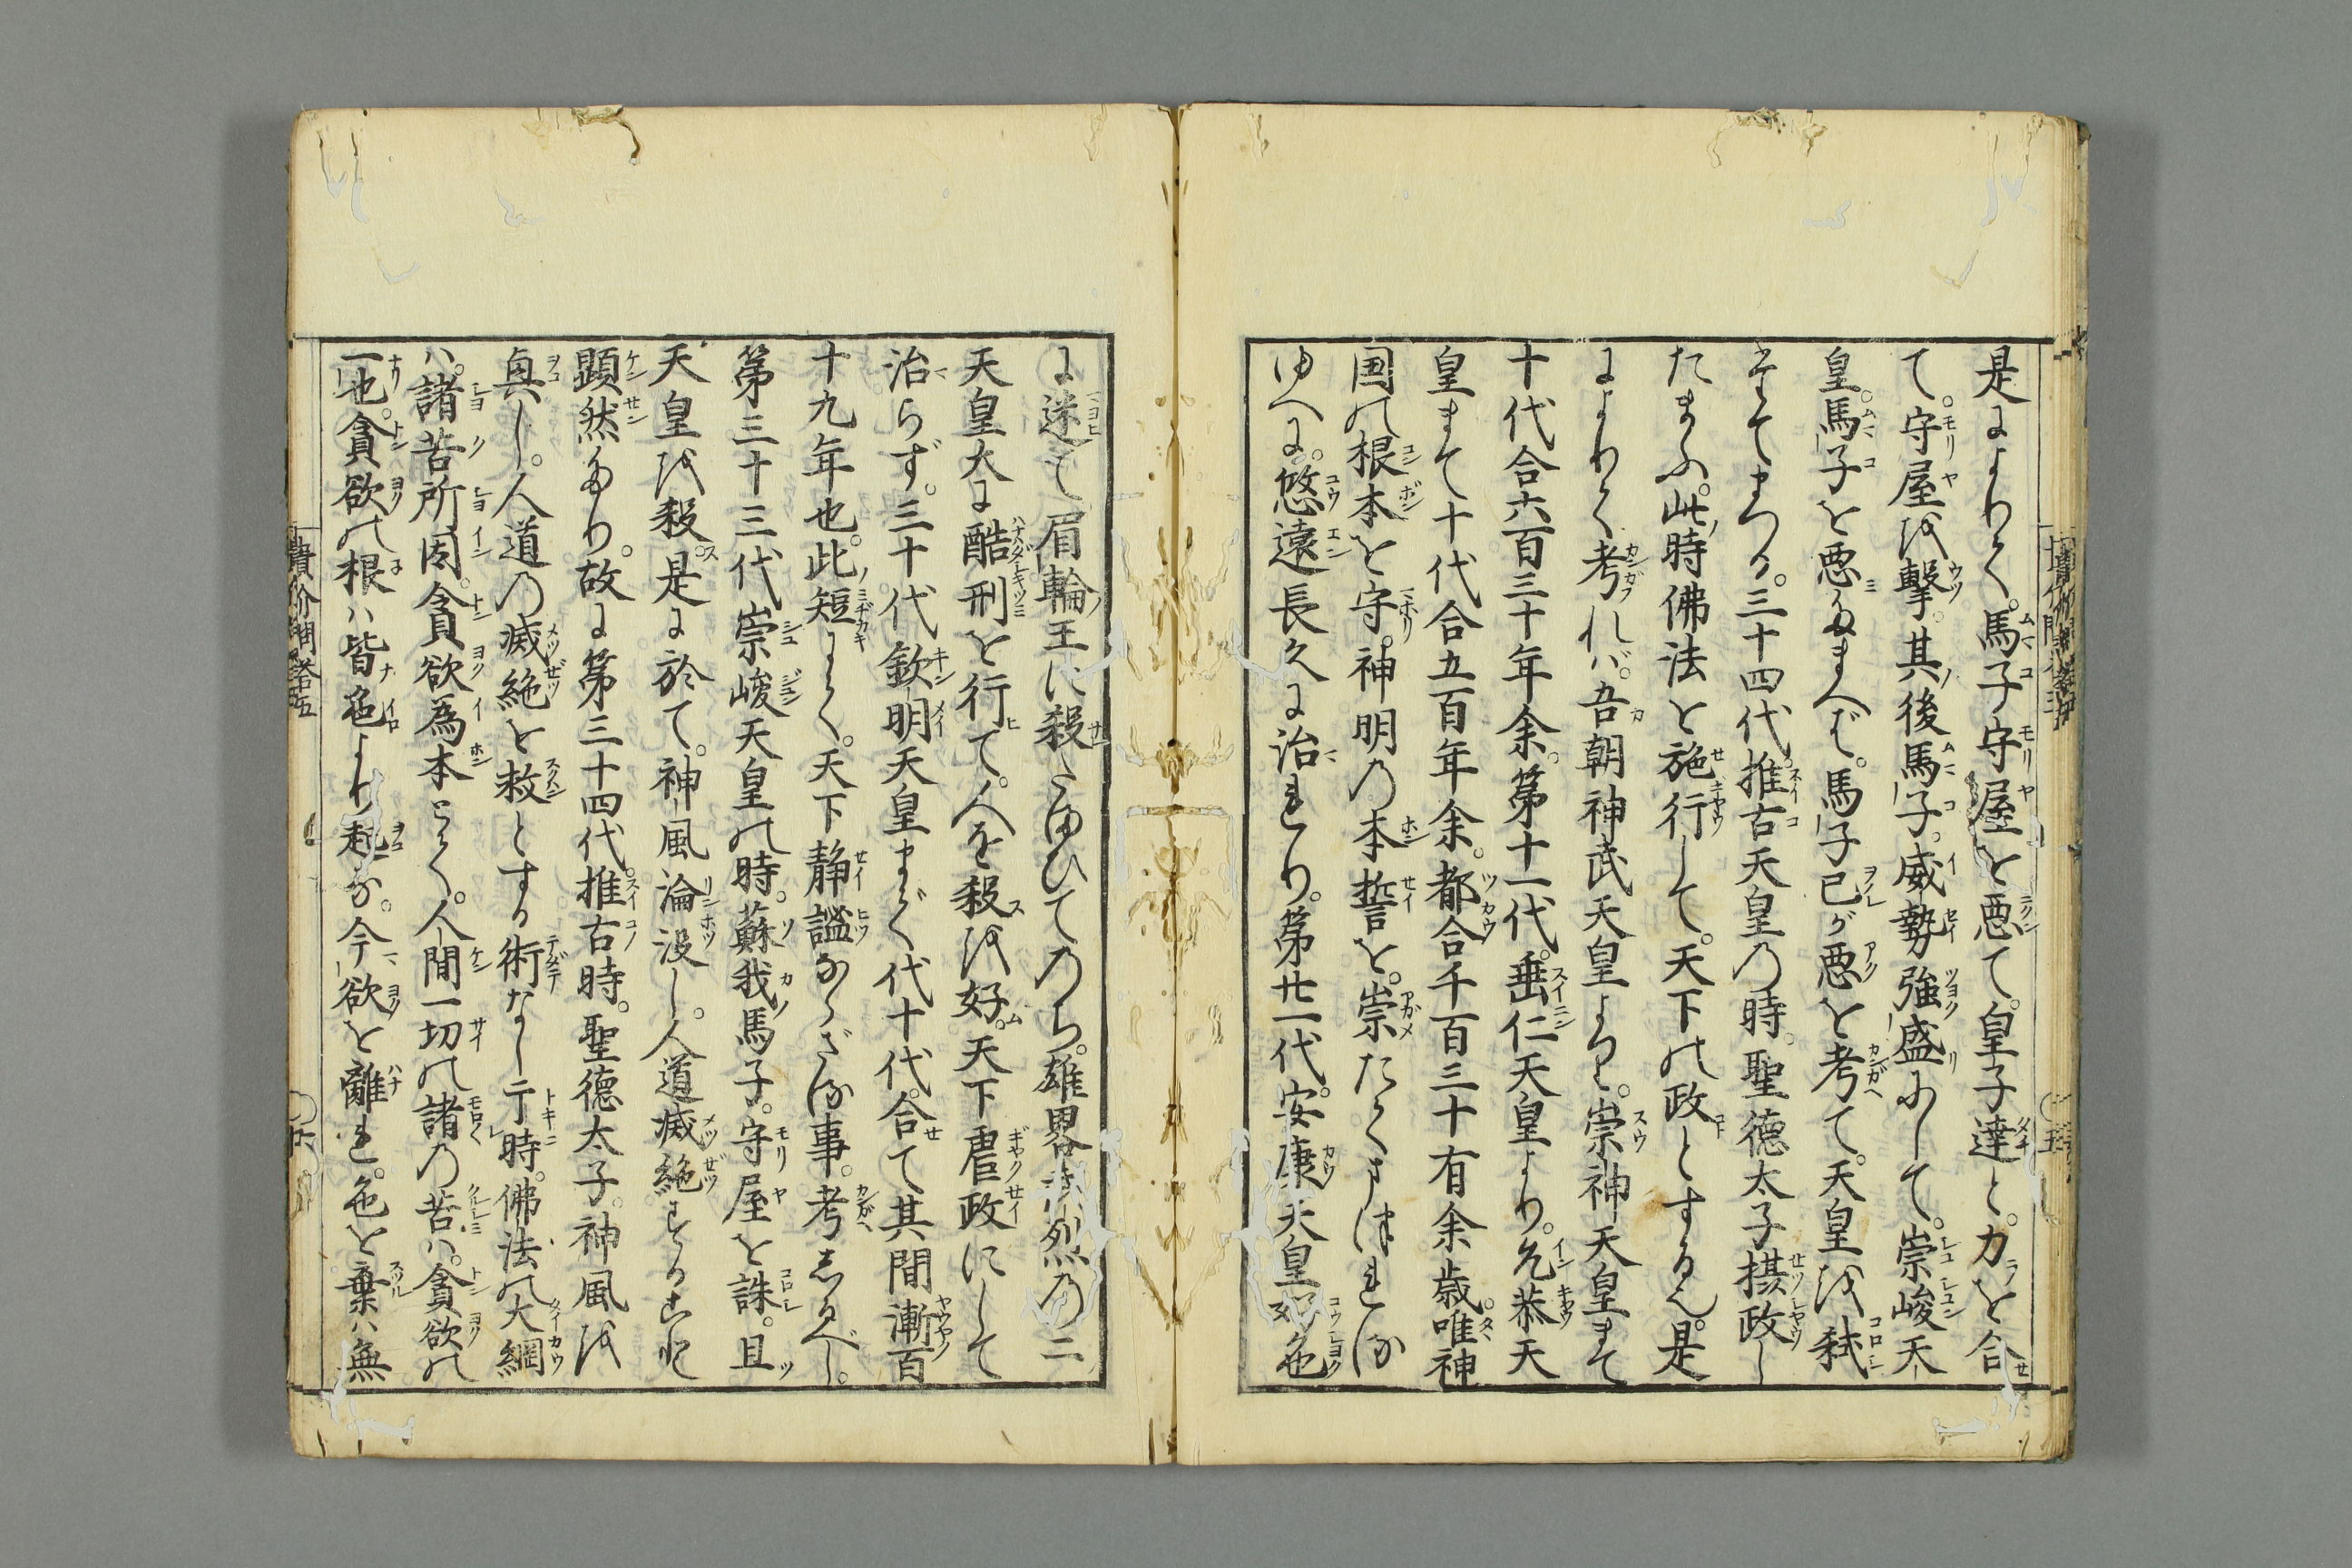 是によりて。馬子守屋を悪て。皇子達と。力を合
て。守屋を撃。其後馬子。威勢強盛にして。崇峻天
皇。馬子を悪たまへば。馬子已が悪を考て。天皇を弑
たてまつる。三十四代推古天皇の時。聖徳太子摂政し
たまふ。此時佛法を施行して。天下の政とするなり。是
によりて考れば。吾朝神武天皇より。崇神天皇まて
十代合六百三十年余。第十一代。垂仁天皇より。允恭天
皇まて十代合五百年余。都合千百三十有余歳。唯神
国の根本を守。神明の本誓を。崇たてまつれる
ゆへに。悠遠長久に治れり。第廿一代。安康天皇好色
に迷て眉輪王に殺たまひてのち。雄畧武烈の二
天皇大に酷刑を行て。人を殺を好。天下虐政にして
治らず。三十代欽明天皇まで代十代。合て其間漸百
十九年也。此短にて。天下静謐ならざる事。考しるべし。
第三十三代崇峻天皇の時。蘇我馬子。守屋を誅。且
天皇を殺。是に於て。神風淪没し。人道滅絶する事
顕然たり。故に第三十四代推古時。聖徳太子。神風を
興し。人道の滅絶を救とする術なし于時。佛法の大綱
ハ。諸苦所因。貪欲為本とて。人間一切の諸の苦ハ。貪欲の
一也。貪欲の根ハ皆色より起る。今欲を離れ。色を棄ハ無
貴介問答五
〇六